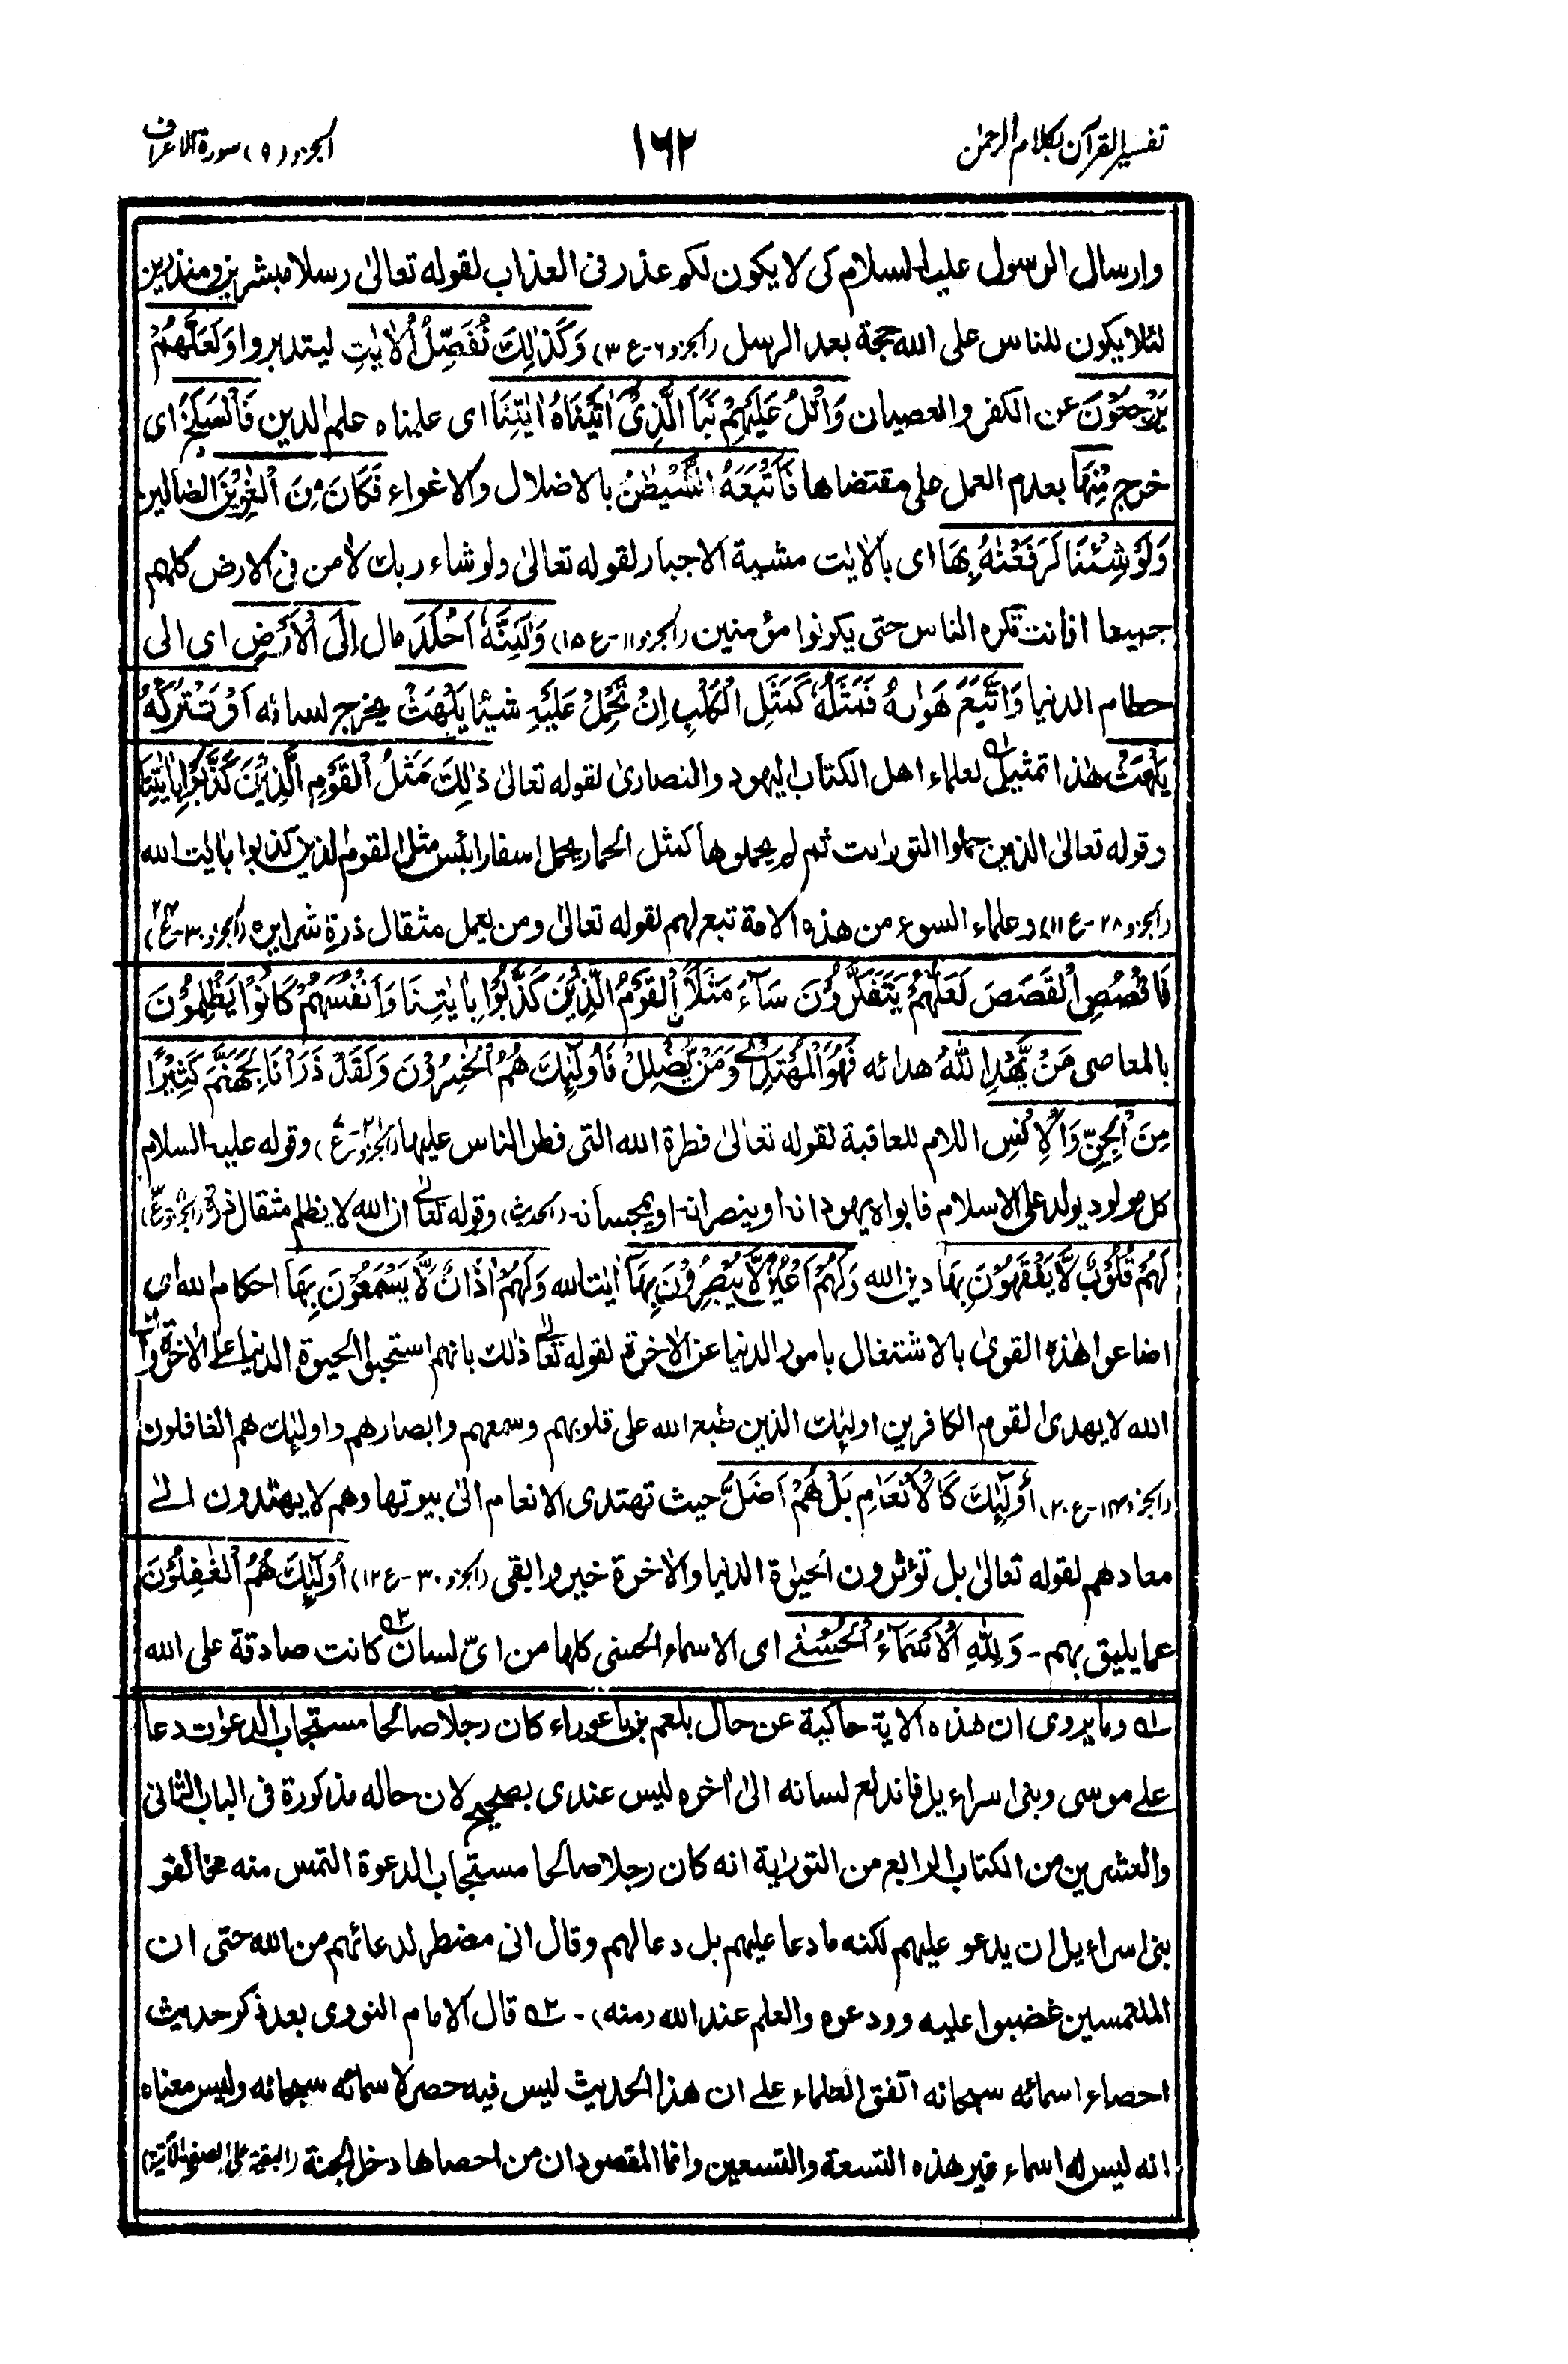 تفسير القرآن بكلام الرحمٰن
١٦٢
الجزو (٩) سورة الاعراف
وارسال الرسول عليه السلام كى لا يكون لكم عذر فى العذاب لقوله تعالىٰ رسلا مبشرين ومنذرين
لئلا يكون للناس على الله حجة بعد الرسل (الجزو ٦-ع ٣) وَكَذٰلِكَ نُفَصِّلُ الْاٰيٰتِ ليتدبروا وَلَعَلَّهُمْ
يَرْجِعُوْنَ عن الكفر والعصيان وَاتْلُ عَلَيْهِمْ نَبَاَ الَّذِىْٓ اٰتَيْنَاهُ اٰيٰتِنَا اى علمناه علم الدين فَانْسَلَخَ اى
خرج مِنْهَا بعدم العمل على مقتضاها فَاَتْبَعَهُ الشَّيْطٰنُ بالاضلال والاغواء فَكَانَ مِنَ الْغٰوِيْنَ الضالين
وَلَوْ شِئْنَا لَرَفَعْنٰهُ بِهَا اى بالاٰيٰت مشية الاجبار لقوله تعالىٰ ولو شاء ربك لاٰمن فى الارض كلهم
جميعا افانت تكره الناس حتى يكونوا مؤمنين (الجزو ١١-ع ١٥) وَلٰكِنَّهٗٓ اَخْلَدَ مال اِلَى الْاَرْضِ اى الى
حطام الدنيا وَاتَّبَعَ هَوٰىهُ فَمَثَلُهٗ كَمَثَلِ الْكَلْبِ اِنْ تَحْمِلْ عَلَيْهِ شيئا يَلْهَثْ يخرج لسانه اَوْ تَتْرُكْهُ
يَلْهَثْ هٰذا تمثيل ١ه لعلماء اهل الكتاب اليهود والنصارىٰ لقوله تعالىٰ ذٰلِكَ مَثَلُ الْقَوْمِ الَّذِيْنَ كَذَّبُوْا بِاٰيٰتِنَا
وقوله تعالىٰ الذين حملوا التورات ثم لم يحملوها كمثل الحمار يحمل اسفارا بئس مثل القوم الذين كذبوا باٰيٰت الله
(الجزو ٢٨-ع ١١) وعلماء السوء من هذه الامة تبع لهم لقوله تعالىٰ ومن يعمل مثقال ذرة شرا يره (الجزو ٣٠-ع ٢٤)
فَاقْصُصِ الْقَصَصَ لَعَلَّهُمْ يَتَفَكَّرُوْنَ سَآءَ مَثَلًا الْقَوْمُ الَّذِيْنَ كَذَّبُوْا بِاٰيٰتِنَا وَاَنْفُسَهُمْ كَانُوْا يَظْلِمُوْنَ
بالمعاصى مَنْ يَّهْدِ اللّٰهُ هدائه فَهُوَ الْمُهْتَدِىْ وَمَنْ يُّضْلِلْ فَاُولٰٓئِكَ هُمُ الْخٰسِرُوْنَ وَلَقَدْ ذَرَاْنَا لِجَهَنَّمَ كَثِيْرًا
مِّنَ الْجِنِّ وَالْاِنْسِ اللام للعاقبة لقوله تعالىٰ فطرة الله التى فطر الناس عليها (الجزو ٢١-ع) وقوله عليه السلام
كل مولود يولد على الاسلام فابواه يهودانه او ينصرانه او يمجسانه (الحديث) وقوله تعالىٰ ان الله لا يظلم مثقال ذرة
لَهُمْ قُلُوْبٌ لَّا يَفْقَهُوْنَ بِهَا دين الله وَلَهُمْ اَعْيُنٌ لَّا يُبْصِرُوْنَ بِهَآ اٰيٰت الله وَلَهُمْ اٰذَانٌ لَّا يَسْمَعُوْنَ بِهَا احكام الله اى
اضاعوا هٰذه القوىٰ بالاشتغال بامور الدنيا عن الاٰخرة لقوله تعالىٰ ذٰلك بانهم استحبوا الحيوة الدنيا على الاٰخرة وان
الله لا يهدى القوم الكافرين اولٰئك الذين طبع الله على قلوبهم وسمعهم وابصارهم واولٰئك هم الغافلون
(الجزو ١٤-ع ٢٠) اُولٰٓئِكَ كَالْاَنْعَامِ بَلْ هُمْ اَضَلُّ حيث تهتدى الانعام الىٰ بيوتها وهم لا يهتدون الىٰ
معادهم لقوله تعالىٰ بل تؤثرون الحيٰوة الدنيا والاٰخرة خير وابقى (الجزو ٣٠-ع ١٢) اُولٰٓئِكَ هُمُ الْغٰفِلُوْنَ
عما يليق بهم - وَلِلّٰهِ الْاَسْمَآءُ الْحُسْنٰى اى الاسماء الحسنى كلها من اىّ لسان ٢ه كانت صادقة على الله
١ه وما يروى ان هٰذه الاٰية حاكية عن حال بلعم بن باعوراء كان رجلا صالحا مستجاب الدعوات دعا
علىٰ موسى وبنى اسراءيل فاندلع لسانه الىٰ اٰخره ليس عندى بصحيح لان حاله مذكورة فى الباب الثانى
والعشرين من الكتاب الرابع من التوراية انه كان رجلا صالحا مستجاب الدعوة التمس منه مخالفو
بنى اسراءيل ان يدعو عليهم لكنه ما دعا عليهم بل دعا لهم وقال انى مضطر لدعائهم من الله حتى ان
الملتمسين غضبوا عليه وودعوه والعلم عند الله (منه) - ٢ه قال الامام النووى بعد ذكر حديث
احصاء اسمائه سبحانه اتفق العلماء علىٰ ان هذا الحديث ليس فيه حصر لاسمائه سبحانه وليس معناه
انه ليس له اسماء غير هذه التسعة والتسعين وانما المقصود ان من احصاها دخل الجنة (البقية على الصفحة الآتية)